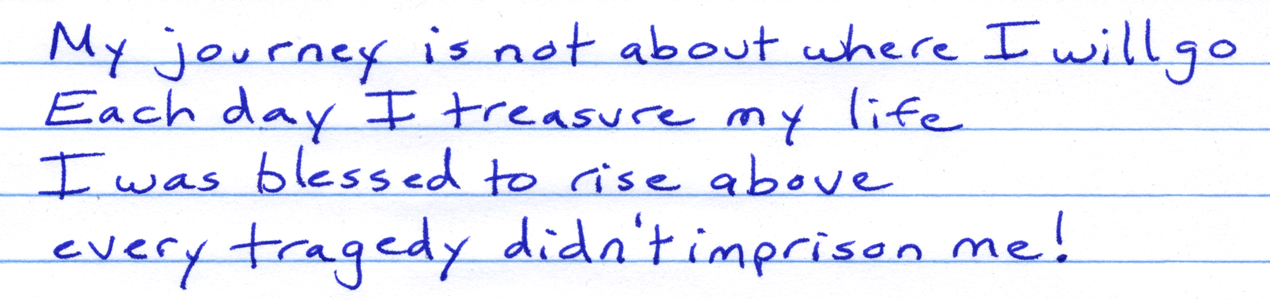 My journey is not about where I will go
Each day I treasure my life
I was blessed to rise above
every tragedy didn't imprison me!